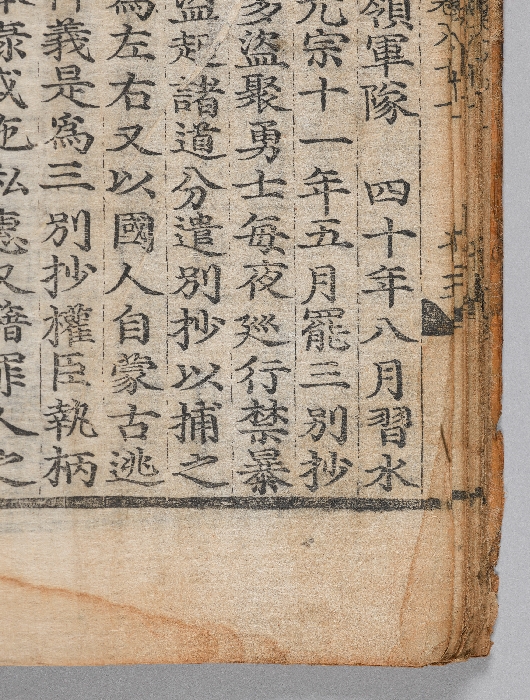 領軍隊　四十年八月習水
元宗十一年五月罷三別抄
多盜聚勇士每夜廵行禁暴
盜起諸道分遣別抄以捕之
爲左右又以國人自蒙古逃
義是爲三別抄權臣執柄
私惠又籍罪人之